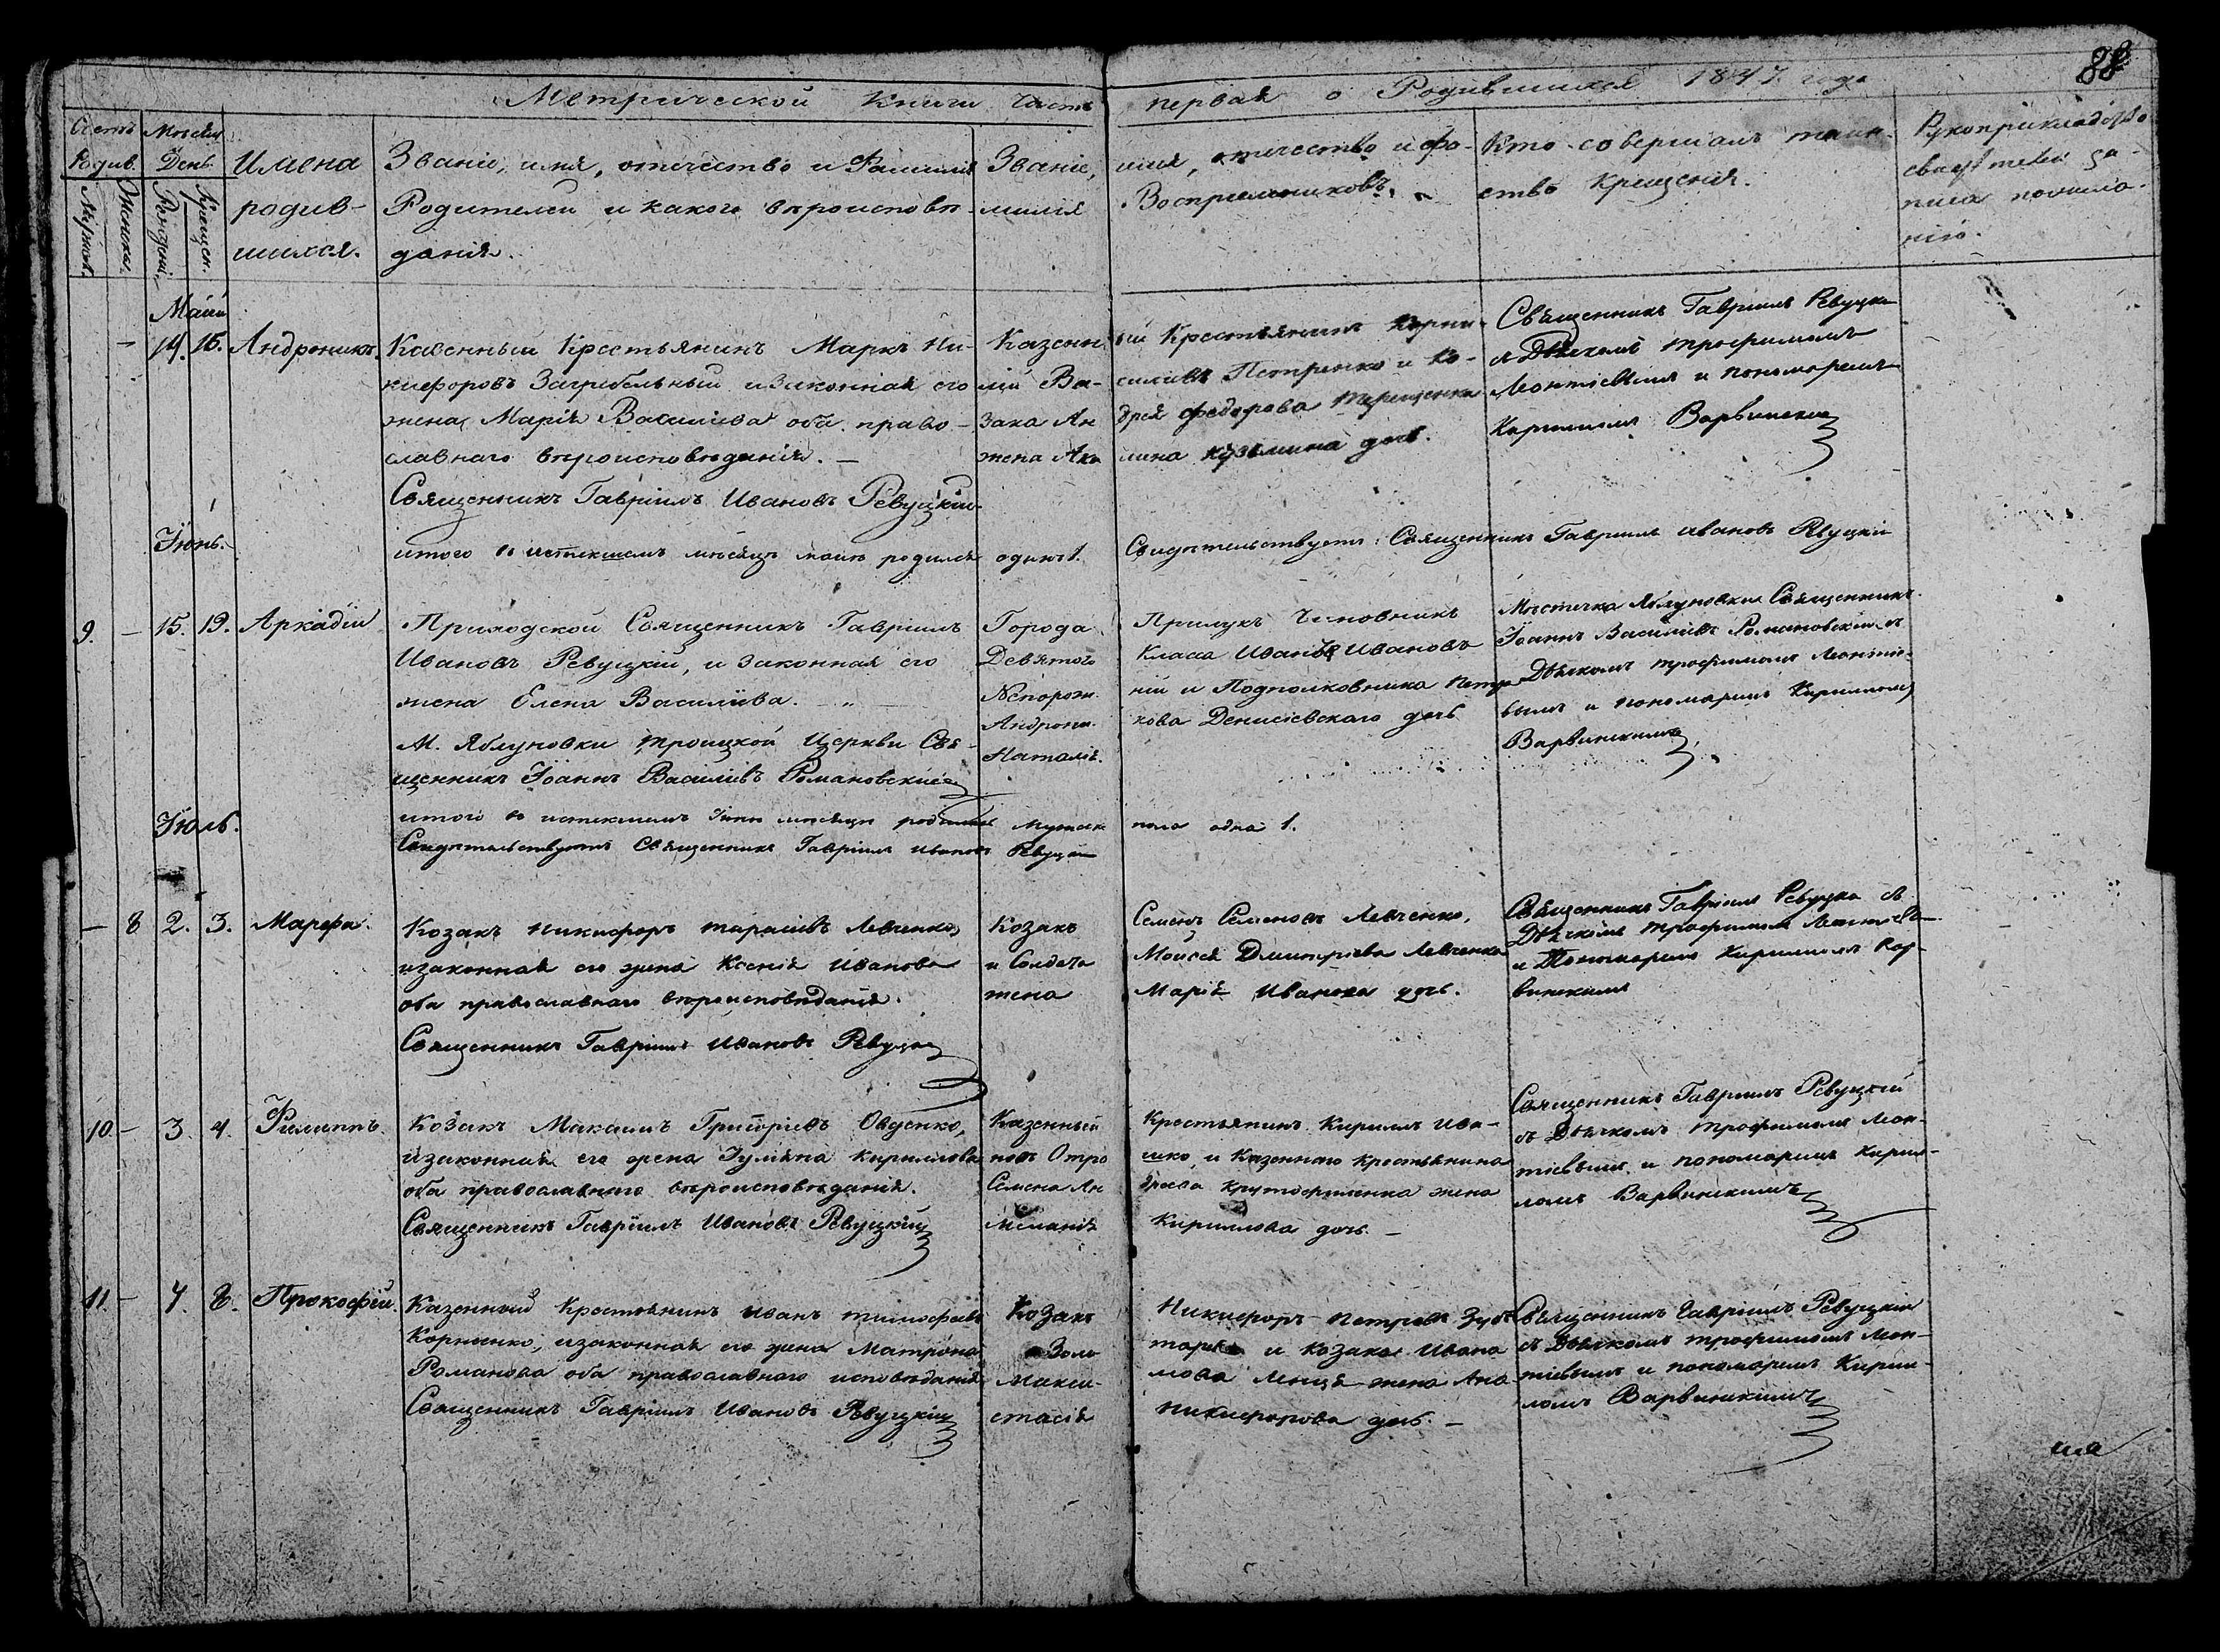 88
Метрической Книги Часть первая о Родившихся 1847 года
Счетъ Родив.
Мужеск.
Женска.
Мѣсяцъ День
Рожденія.
Крещен.
Имена
родив-
шихся.
Званіе, имя, отчество и Фамилія
Родителей и какого вѣроисповѣ-
данія.
Званіе, имя, отчество и фа-
милія Воспріемниковъ.
Кто совершалъ таин-
ство крещенія.
Рукоприкладство
свидѣтелей за-
писи
Маій
14. 15. Андроникъ.
Казенный Крестьянинъ Маркъ Ни-
кифоровъ Загребельный и законная его
жена Марія Василіева оба право-
славнаго вѣроисповѣданія. —
Священникъ Гавріилъ Ивановъ Ревуцкій
Казенный Крестьянинъ
Петренко и Ко-
зака Андрея Федорова Терещенка
жена Акилина Кузьмина дочь.
Священникъ Гавріилъ Ревуцкій
съ Дьякомъ Трофимомъ
Леонтіевымъ и пономаремъ
Кирилломъ Варвинскимъ
Іюнь.
итого въ истекшемъ мѣсяцѣ маіи родился одинъ 1.
Свидѣтельствуетъ: Священникъ Гавріилъ Ивановъ Ревуцкій
9. — 15. 19. Аркадій
Приходской Священникъ Гавріилъ
Ивановъ Ревуцкій, и законная его
жена Елена Василіева. — „ —
М. Яблуновки Троицкой Церкви Свя-
щенникъ Іоаннъ Василіевъ Романовскій
Города Прилукъ Чиновникъ
Девятого Класса Иванъ Ивановъ
и Подполковника Петра
Андроникова Денисіевскаго дочь
Наталія.
Мѣстечка Яблуновки Священникъ
Іоаннъ Василіевъ Романовскій съ
Дьякомъ Трофимомъ Леонтіе-
вымъ и пономаремъ Кирилломъ
Варвинскимъ
Іюль.
итого въ истекшемъ Іюнѣ мѣсяцѣ мужеска пола одна 1.
Свидѣтельствуетъ Священникъ Гавріилъ Ивановъ Ревуцкій
— 8 2. 3. Марефа.
Козакъ Никифоръ Тарасіевъ Левченко,
и законная его жена Ксенія Иванова
оба православнаго вѣроисповѣданія.
Священникъ Гавріилъ Ивановъ Ревуцкій
Козакъ Семенъ Семеновъ Левченко,
и Солдата Мойсея Димитріева Левченка
жена Марія Иванова дочь.
Священникъ Гавріилъ Ревуцкій съ
Дьякомъ Трофимомъ Леонтіевымъ
и Пономаремъ Кирилломъ Вар-
винскимъ
10. — 3. 4. Филиппъ.
Козакъ Максимъ Григоріевъ Овденко,
и законная его жена Іуліяна Кириллова
оба православнаго вѣроисповѣданія.
Священникъ Гавріилъ Ивановъ Ревуцкій
Казенный Крестьянинъ Кириллъ Ива-
новъ Отрошко, и Казеннаго Крестьянина
Семена Андреева жена
Меланія Кириллова дочь. —
Священникъ Гавріилъ Ревуцкій
съ Дьякомъ Трофимомъ Леон-
тіевымъ и пономаремъ Кирил-
ломъ Варвинскимъ
11 — 4. 8. Прокофій.
Казенный Крестьянинъ Иванъ Тимофеевъ
Корніенко, и законная его жена Матрона
Романова оба православнаго исповѣданія
Священникъ Гавріилъ Ивановъ Ревуцкій
Козакъ Никифоръ Петровъ
и Козака Ивана
жена Ана-
стасія Никифорова дочь. —
Священникъ Гавріилъ Ревуцкій
съ Дьякомъ Трофимомъ Леон-
тіевымъ и пономаремъ Кирил-
ломъ Варвинскимъ